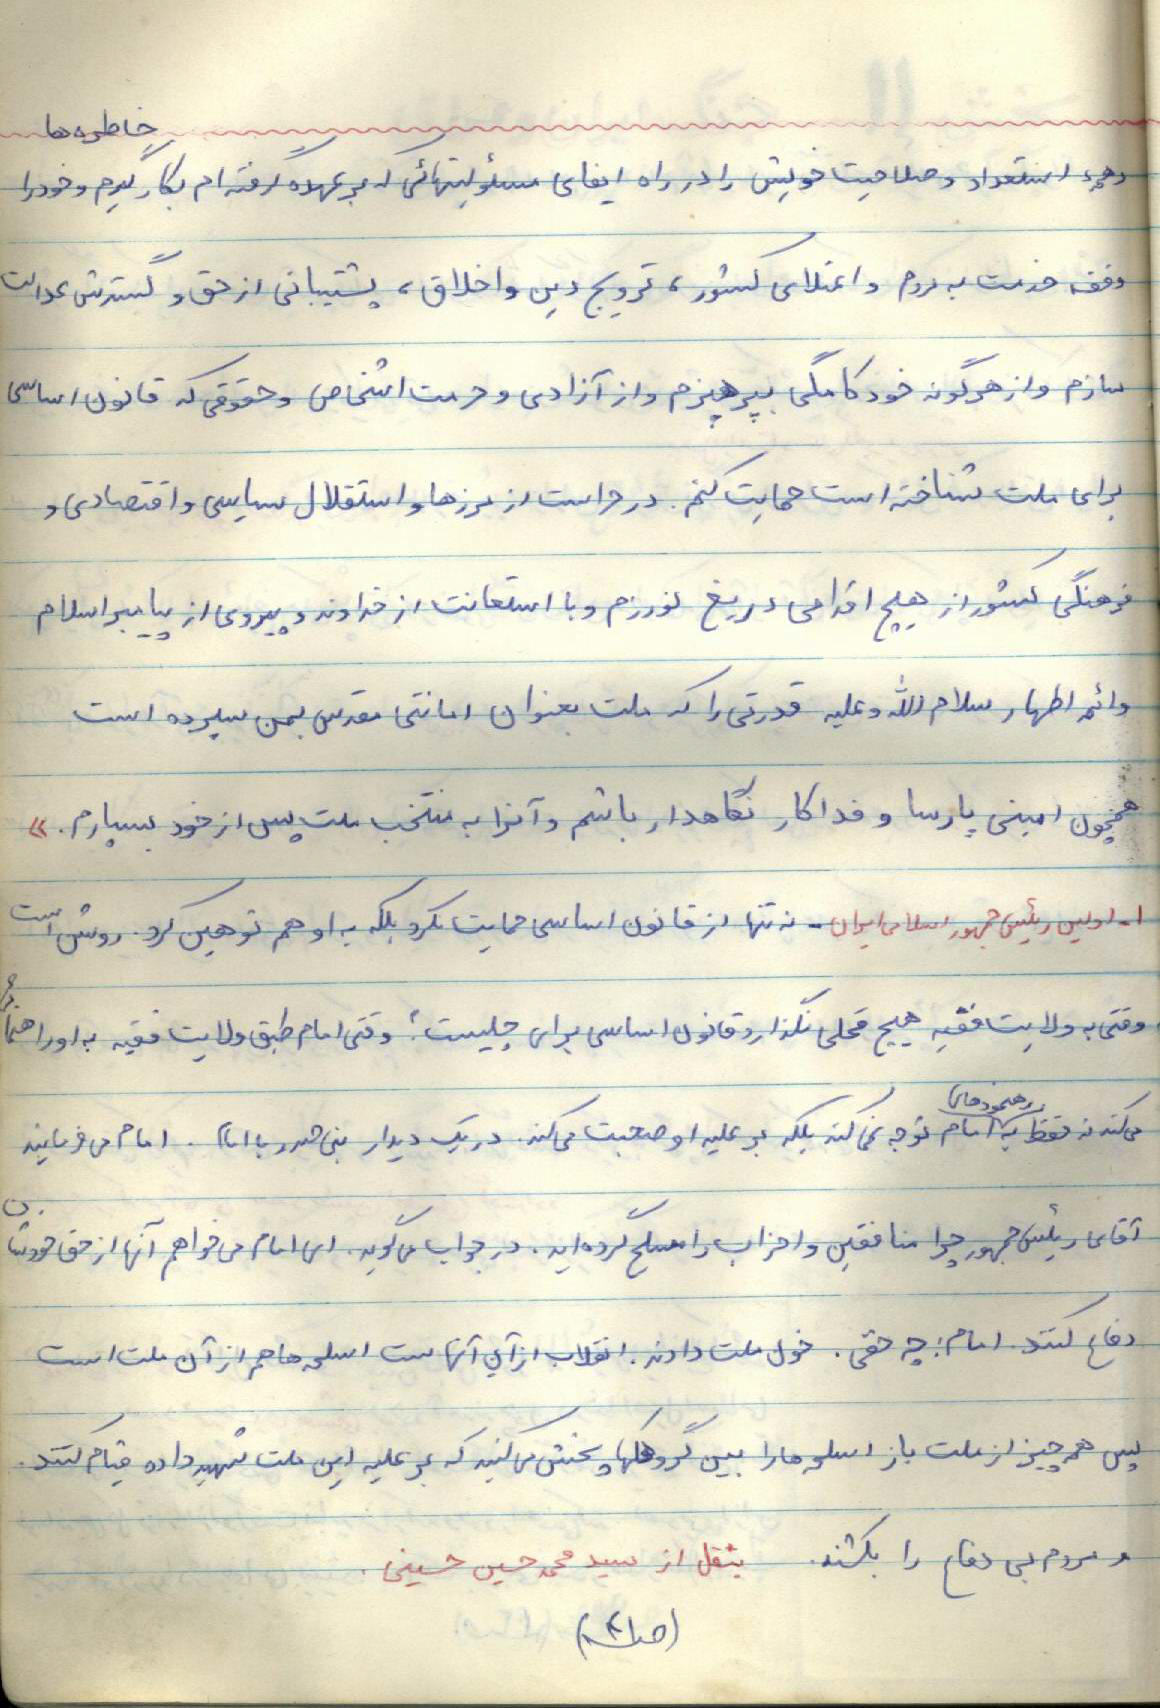 خاطره‌ها
و همهٔ استعداد و صلاحیت خویش را در راه ایفای مسئولیتهائی که بر عهده گرفته‌ام بکار گیرم و خود را
وقف خدمت به مردم و اعتلای کشور، ترویج دین و اخلاق، پشتیبانی از حق و گسترش عدالت
سازم و از هرگونه خودکامگی بپرهیزم و از آزادی و حرمت اشخاص و حقوقی که قانون اساسی
برای ملت شناخته است حمایت کنم. در حراست از مرزها و استقلال سیاسی و اقتصادی و
فرهنگی کشور از هیچ اقدامی دریغ نورزم و با استعانت از خداوند و پیروی از پیامبر اسلام
و ائمه اطهار سلام الله وعلیه قدرتی را که ملت بعنوان امانتی مقدس بمن سپرده است
همچون امینی پارسا و فداکار نگاهدار باشم و آنرا به منتخب ملت پس از خود بسپارم. »
۱ـ اولین رئیس جمهور اسلامی ایران ـ نه تنها از قانون اساسی حمایت نکرد بلکه به او هم توهین کرد. روشن است
وقتی به ولایت فقیه هیچ محلی نگذارد قانون اساسی برای چیست؟ وقتی امام طبق ولایت فقیه به او راهنمائی
می‌کند نه فقط به رهنمودهای امام توجه نمی‌کند بلکه بر علیه او صحبت می‌کند. در یک دیدار بنی صدر با امام. امام می‌فرمایند
آقای رئیس جمهور چرا منافقین و احزاب را مسلح کرده‌اید. در جواب می‌گوید. ای امام می‌خواهم آنها از حق خودشان
دفاع کنند. امام: چه حقی. خون ملت دادند. انقلاب از آن آنهاست اسلحه‌ها هم از آن ملت است
پس همه چیز از ملت باز اسلحه‌ها را بین گروهکها پخش می‌کنید که بر علیه این ملت شهید داده قیام کنند.
و مردم بی دفاع را بکشند. بنقل از سید محمد حسین حسینی.